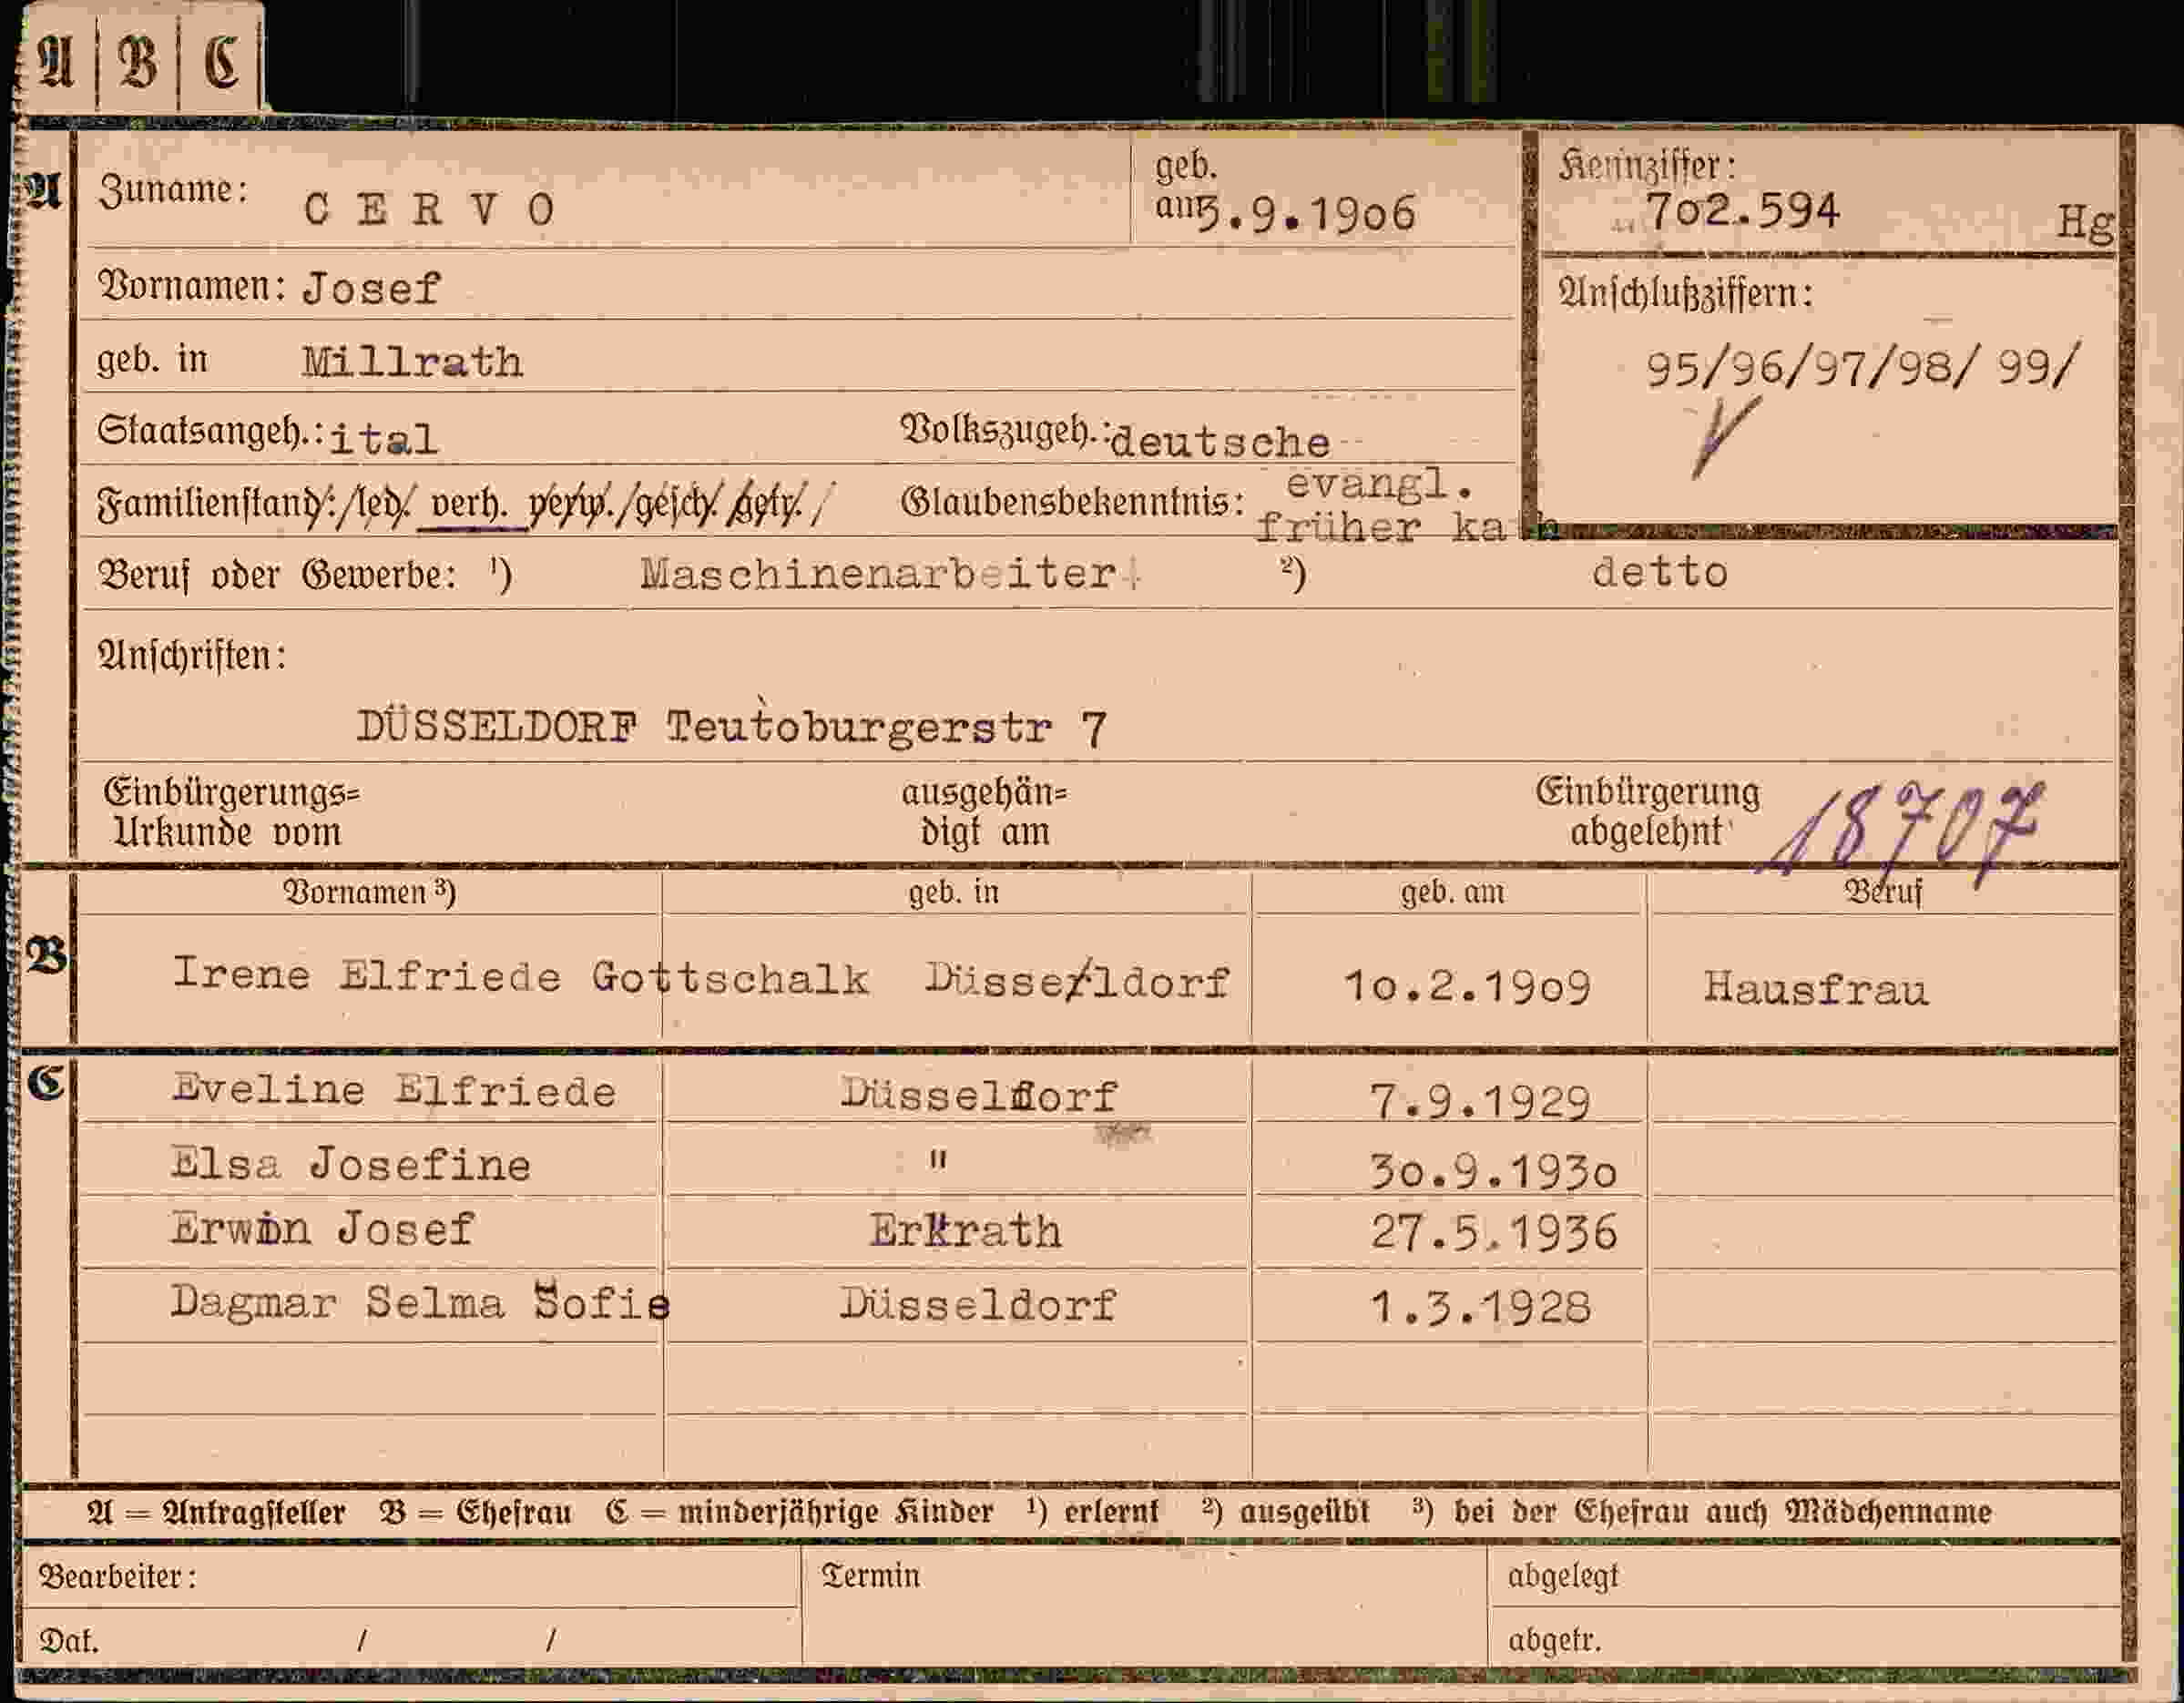 A | B | C
A Zuname: CERVO geb. am 3.9.1906 Kennziffer: 702.594 Hg
Vornamen: Josef Anschlußziffern:
geb. in Millrath 95/96/97/98/ 99/
Staatsangeh.: ital Volkszugeh.: deutsche
Familienstand: /led. verh. verw./gesch. getr. / Glaubensbekenntnis: evangl.
früher kath
Beruf oder Gewerbe: ¹) Maschinenarbeiter ²) detto
Anschriften:
DÜSSELDORF Teutoburgerstr 7
Einbürgerungs= ausgehän= Einbürgerung 18707
Urkunde vom digt am abgelehnt
Vornamen ³) geb. in geb. am Beruf
B Irene Elfriede Gottschalk Düsseldorf 10.2.1909 Hausfrau
C Eveline Elfriede Düsseldorf 7.9.1929
Elsa Josefine " 30.9.1930
Erwin Josef Erkrath 27.5.1936
Dagmar Selma Sofie Düsseldorf 1.3.1928
A = Antragsteller B = Ehefrau C = minderjährige Kinder ¹) erlernt ²) ausgeübt ³) bei der Ehefrau auch Mädchenname
Bearbeiter: Termin abgelegt
Dat. / / abgetr.